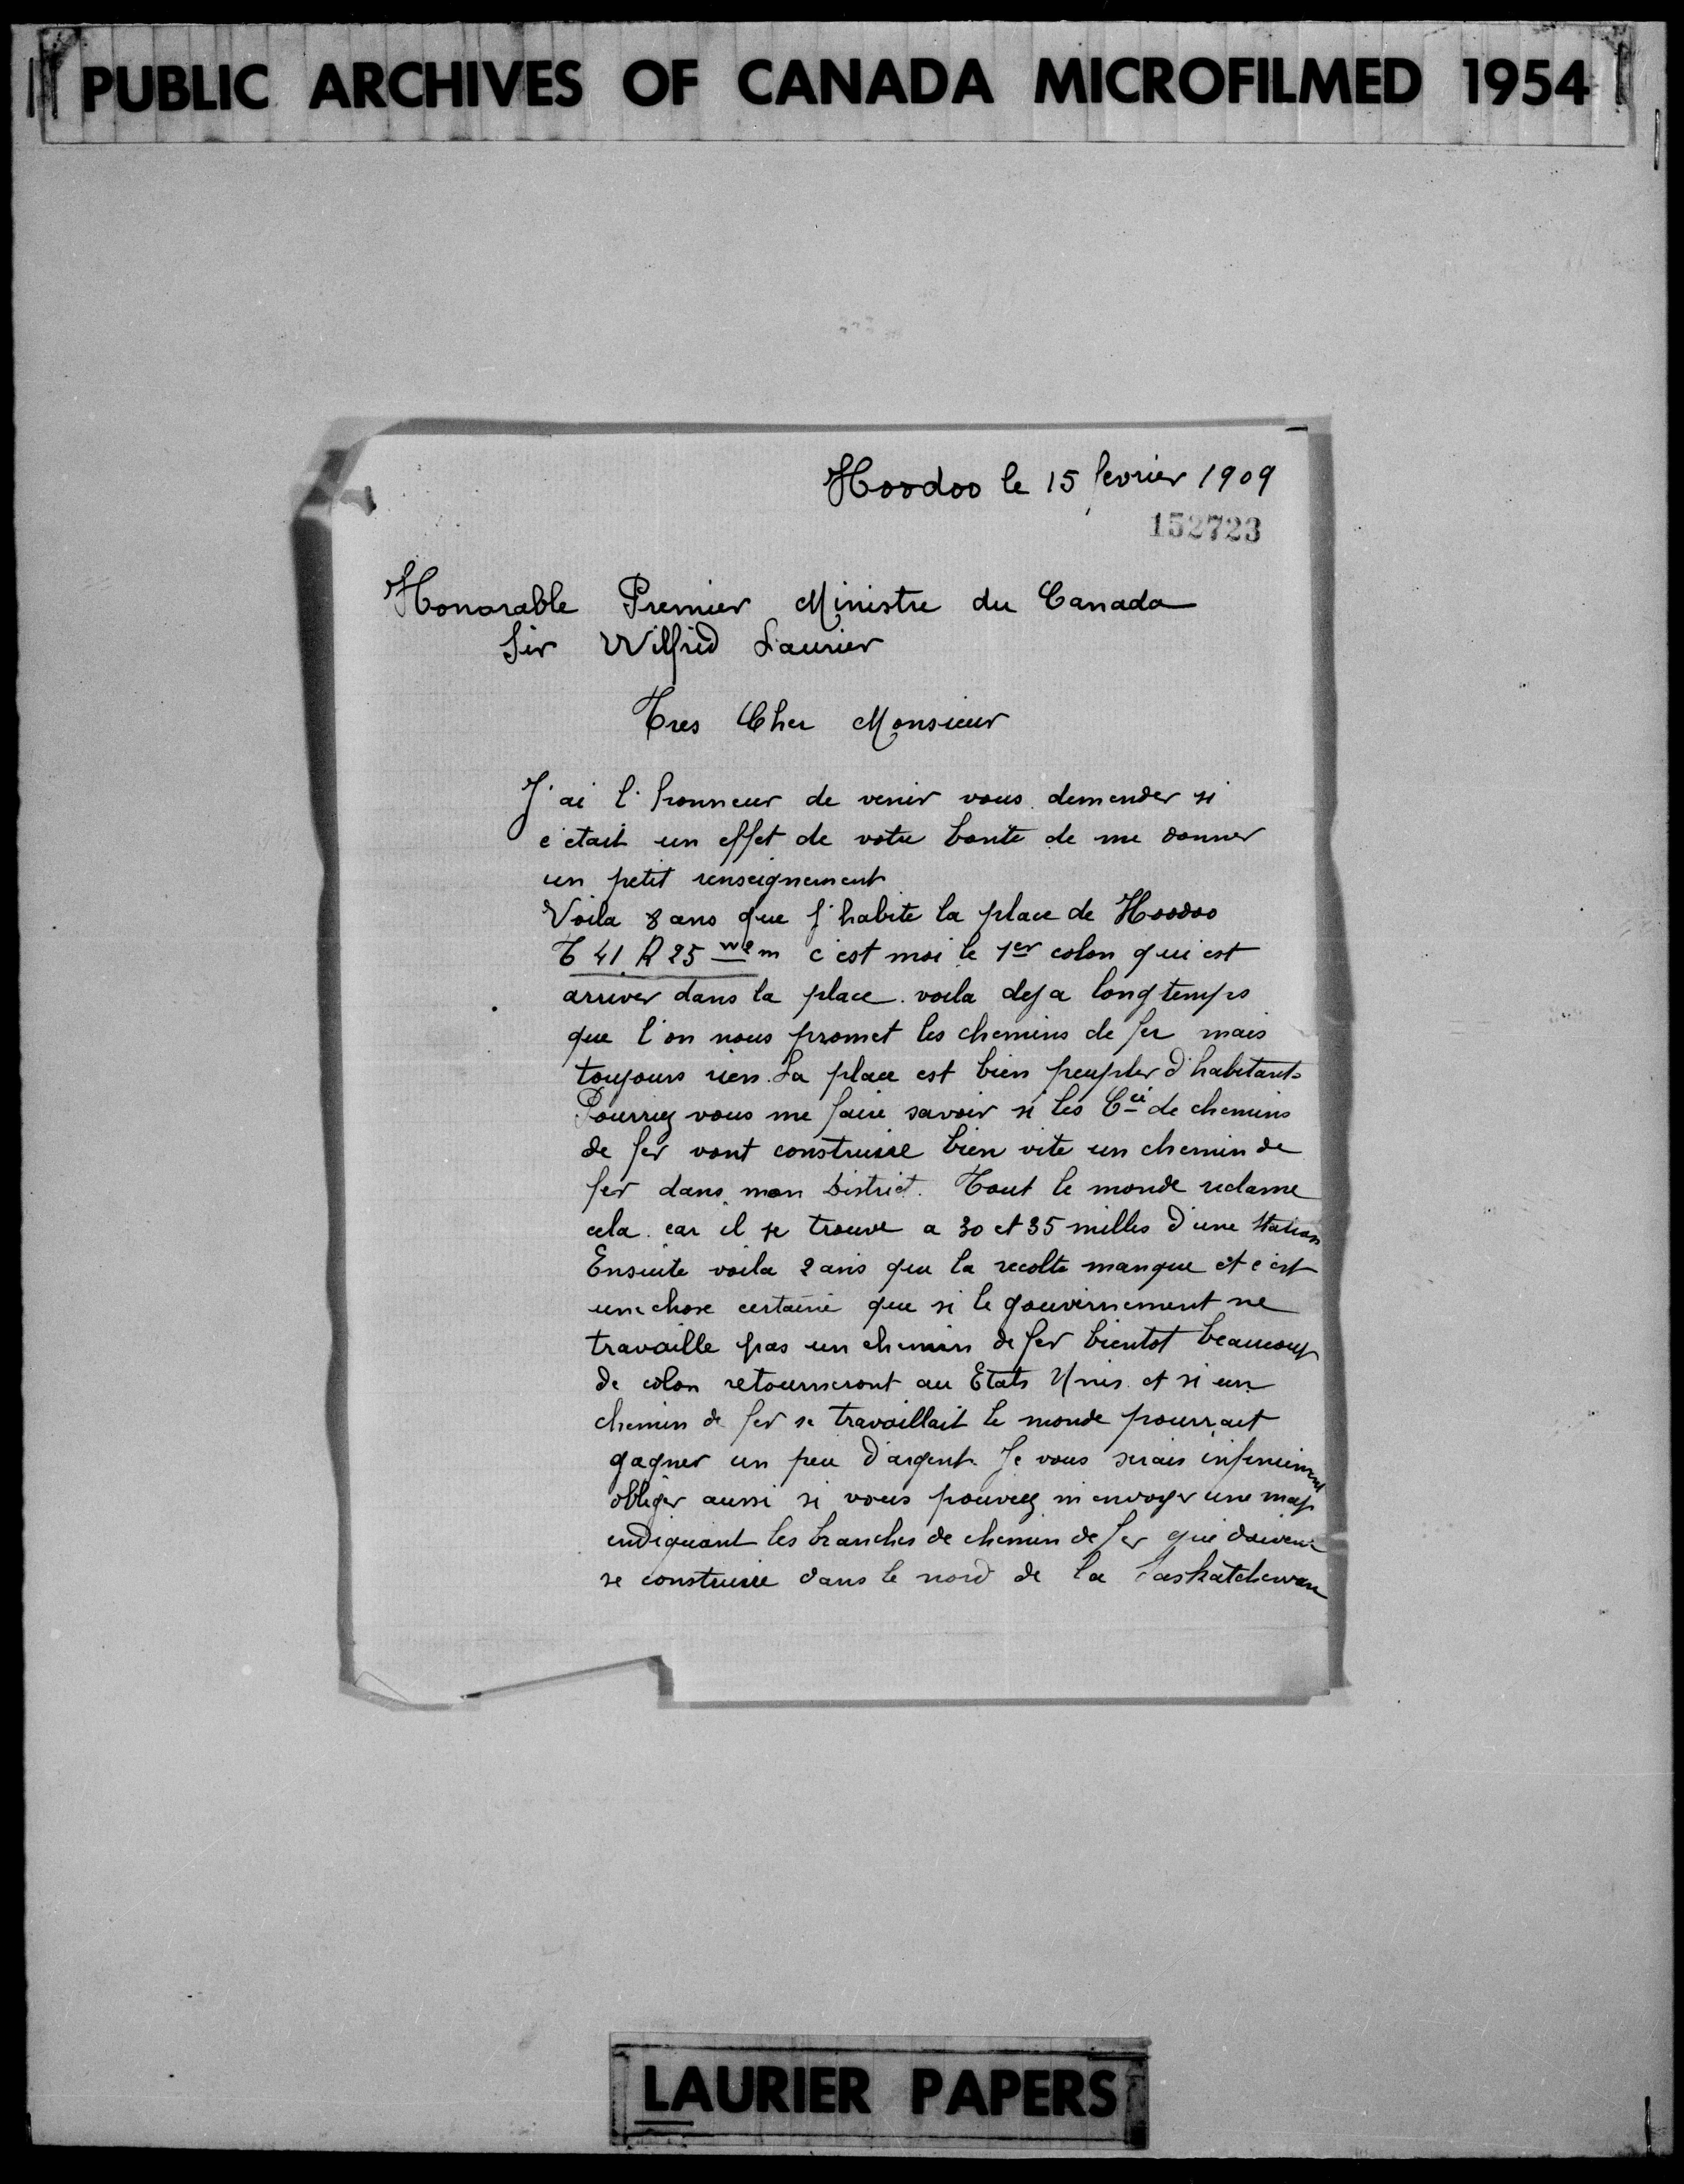 PUBLIC ARCHIVES OF CANADA MICROFILMED 1954
Hoodoo le 15 fevrier 1909
152723
Honorable Premier Ministre du Canada
Sir Wilfrid Laurier
Tres Cher Monsieur
J'ai l'honneur de venir vous demender si
c'etait un effet de votre bonté de me donner
un petit renseignement
Voila 8 ans que j'habite la place de Hoodoo
T 41 R 25 w2m c'est moi le 1er colon qui est
arriver dans la place. voila deja longtemps
que l'on nous promet les chemins de fer mais
toujours rien. La place est bien peupler d'habitants
Pourriez vous me faire savoir si les Cie de chemins
de fer vont construire bien vite un chemin de
fer dans mon District. Tout le monde reclame
cela. car il se trouve a 30 et 35 milles d'une station
Ensuite voila 2 ans que la recolte manque et c'est
une chose certaine que si le gouvernement ne
travaille pas un chemin de fer bientot beaucoup
de colon retourneront au Etats Unis. et si un
chemin de fer se travaillait le monde pourrait
gagner un peu d'argent. Je vous serais infiniment
obliger aussi si vous pouviez m'envoyer une map
indiquant les branches de chemin de fer qui doivent
se construire dans le nord de la Saskatchewan
LAURIER PAPERS